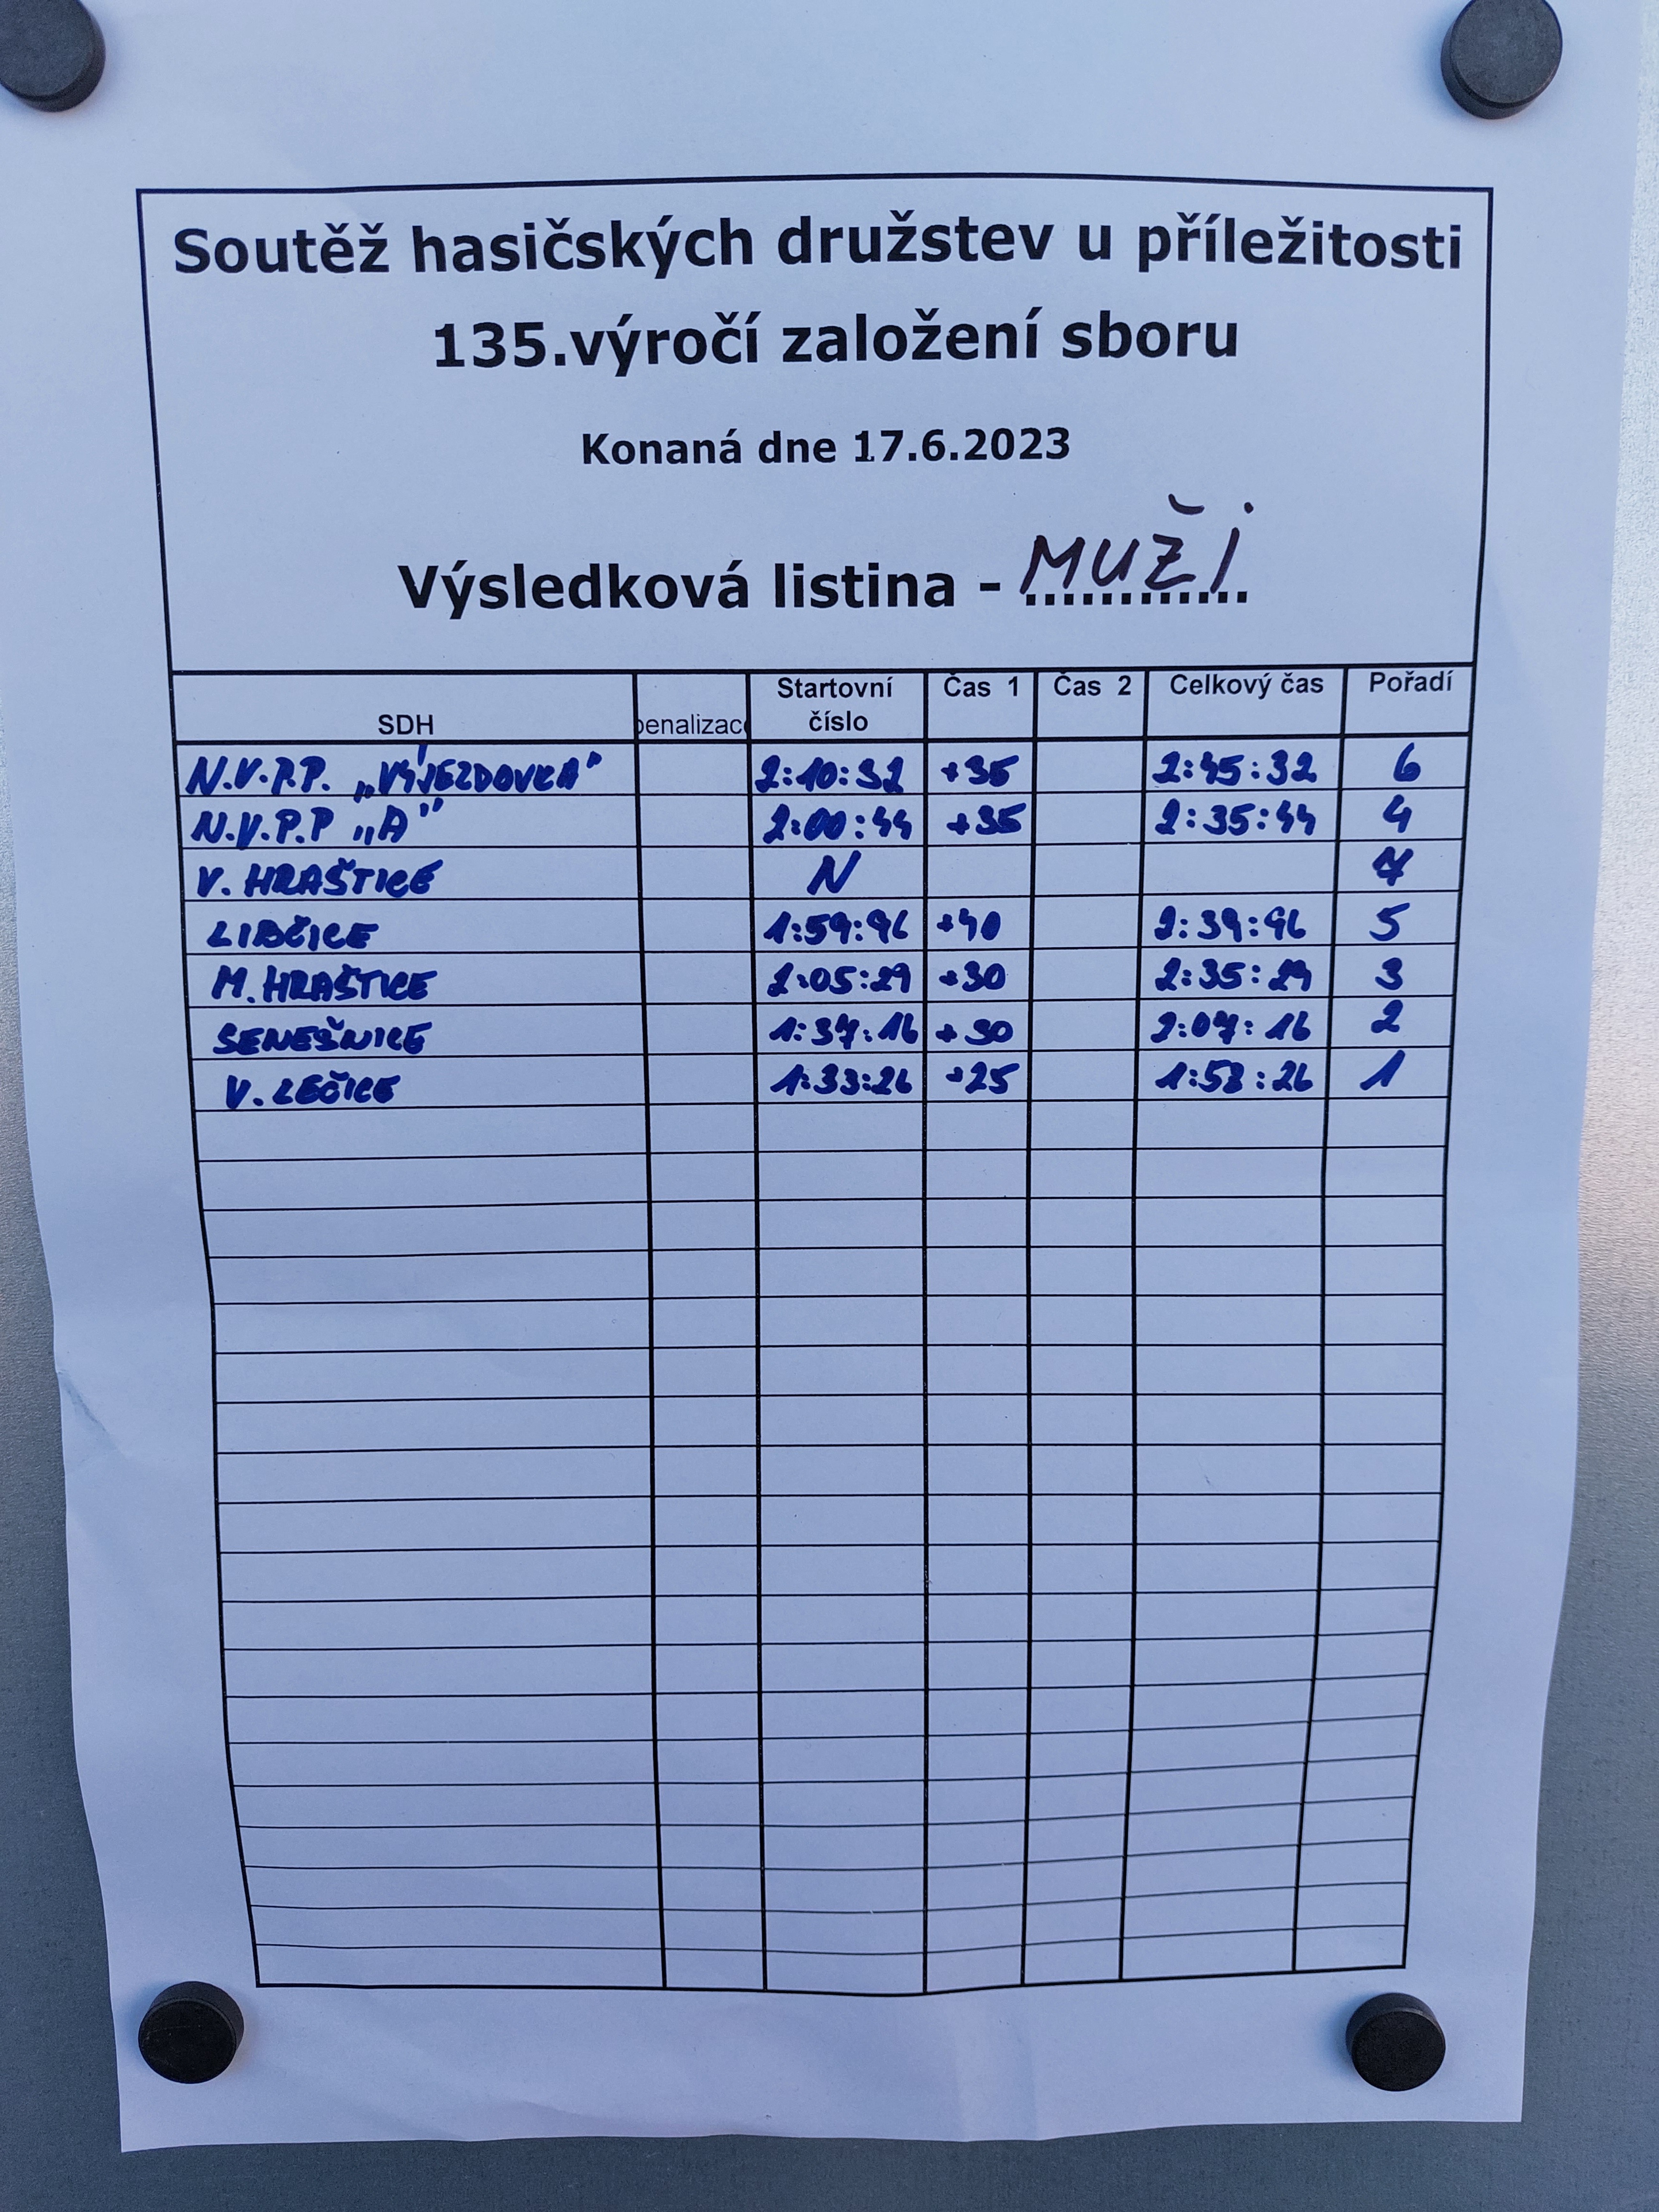 Soutěž hasičských družstev u příležitosti
135.výročí založení sboru
Konaná dne 17.6.2023
Výsledková listina - MUŽI
SDH penalizac Startovní číslo Čas 1 Čas 2 Celkový čas Pořadí
N.V.P.P. „VÝJEZDOVKA" 2:10:32 +35 2:45:32 6
N.V.P.P „A" 2:00:44 +35 2:35:44 4
V. HRAŠTICE N 7
LIBČICE 1:59:96 +40 2:39:96 5
M. HRAŠTICE 2:05:29 +30 2:35:29 3
SENEŠNICE 1:37:16 +30 2:07:16 2
V. LEČICE 1:33:26 +25 1:58:26 1